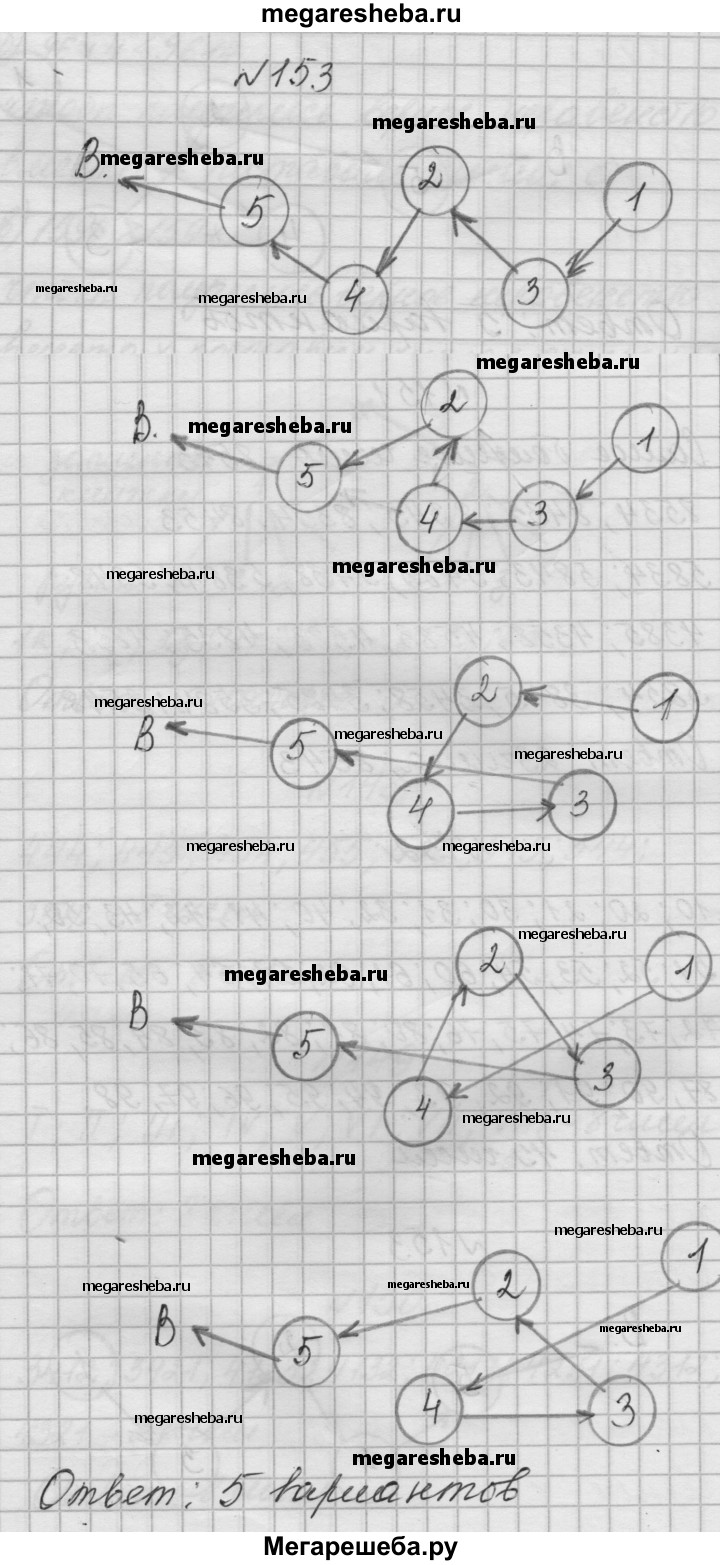 megaresheba.ru
№153
megaresheba.ru
В. megaresheba.ru
2
1
5
4
3
megaresheba.ru
megaresheba.ru
megaresheba.ru
2
В. megaresheba.ru
1
5
4
3
megaresheba.ru
megaresheba.ru
2
1
megaresheba.ru
В
5
megaresheba.ru
megaresheba.ru
4
3
megaresheba.ru
megaresheba.ru
megaresheba.ru
2
1
megaresheba.ru
В
5
3
4
megaresheba.ru
megaresheba.ru
megaresheba.ru
1
megaresheba.ru
megaresheba.ru
2
В
5
megaresheba.ru
4
3
megaresheba.ru
megaresheba.ru
Ответ: 5 вариантов
Мегарешеба.ру